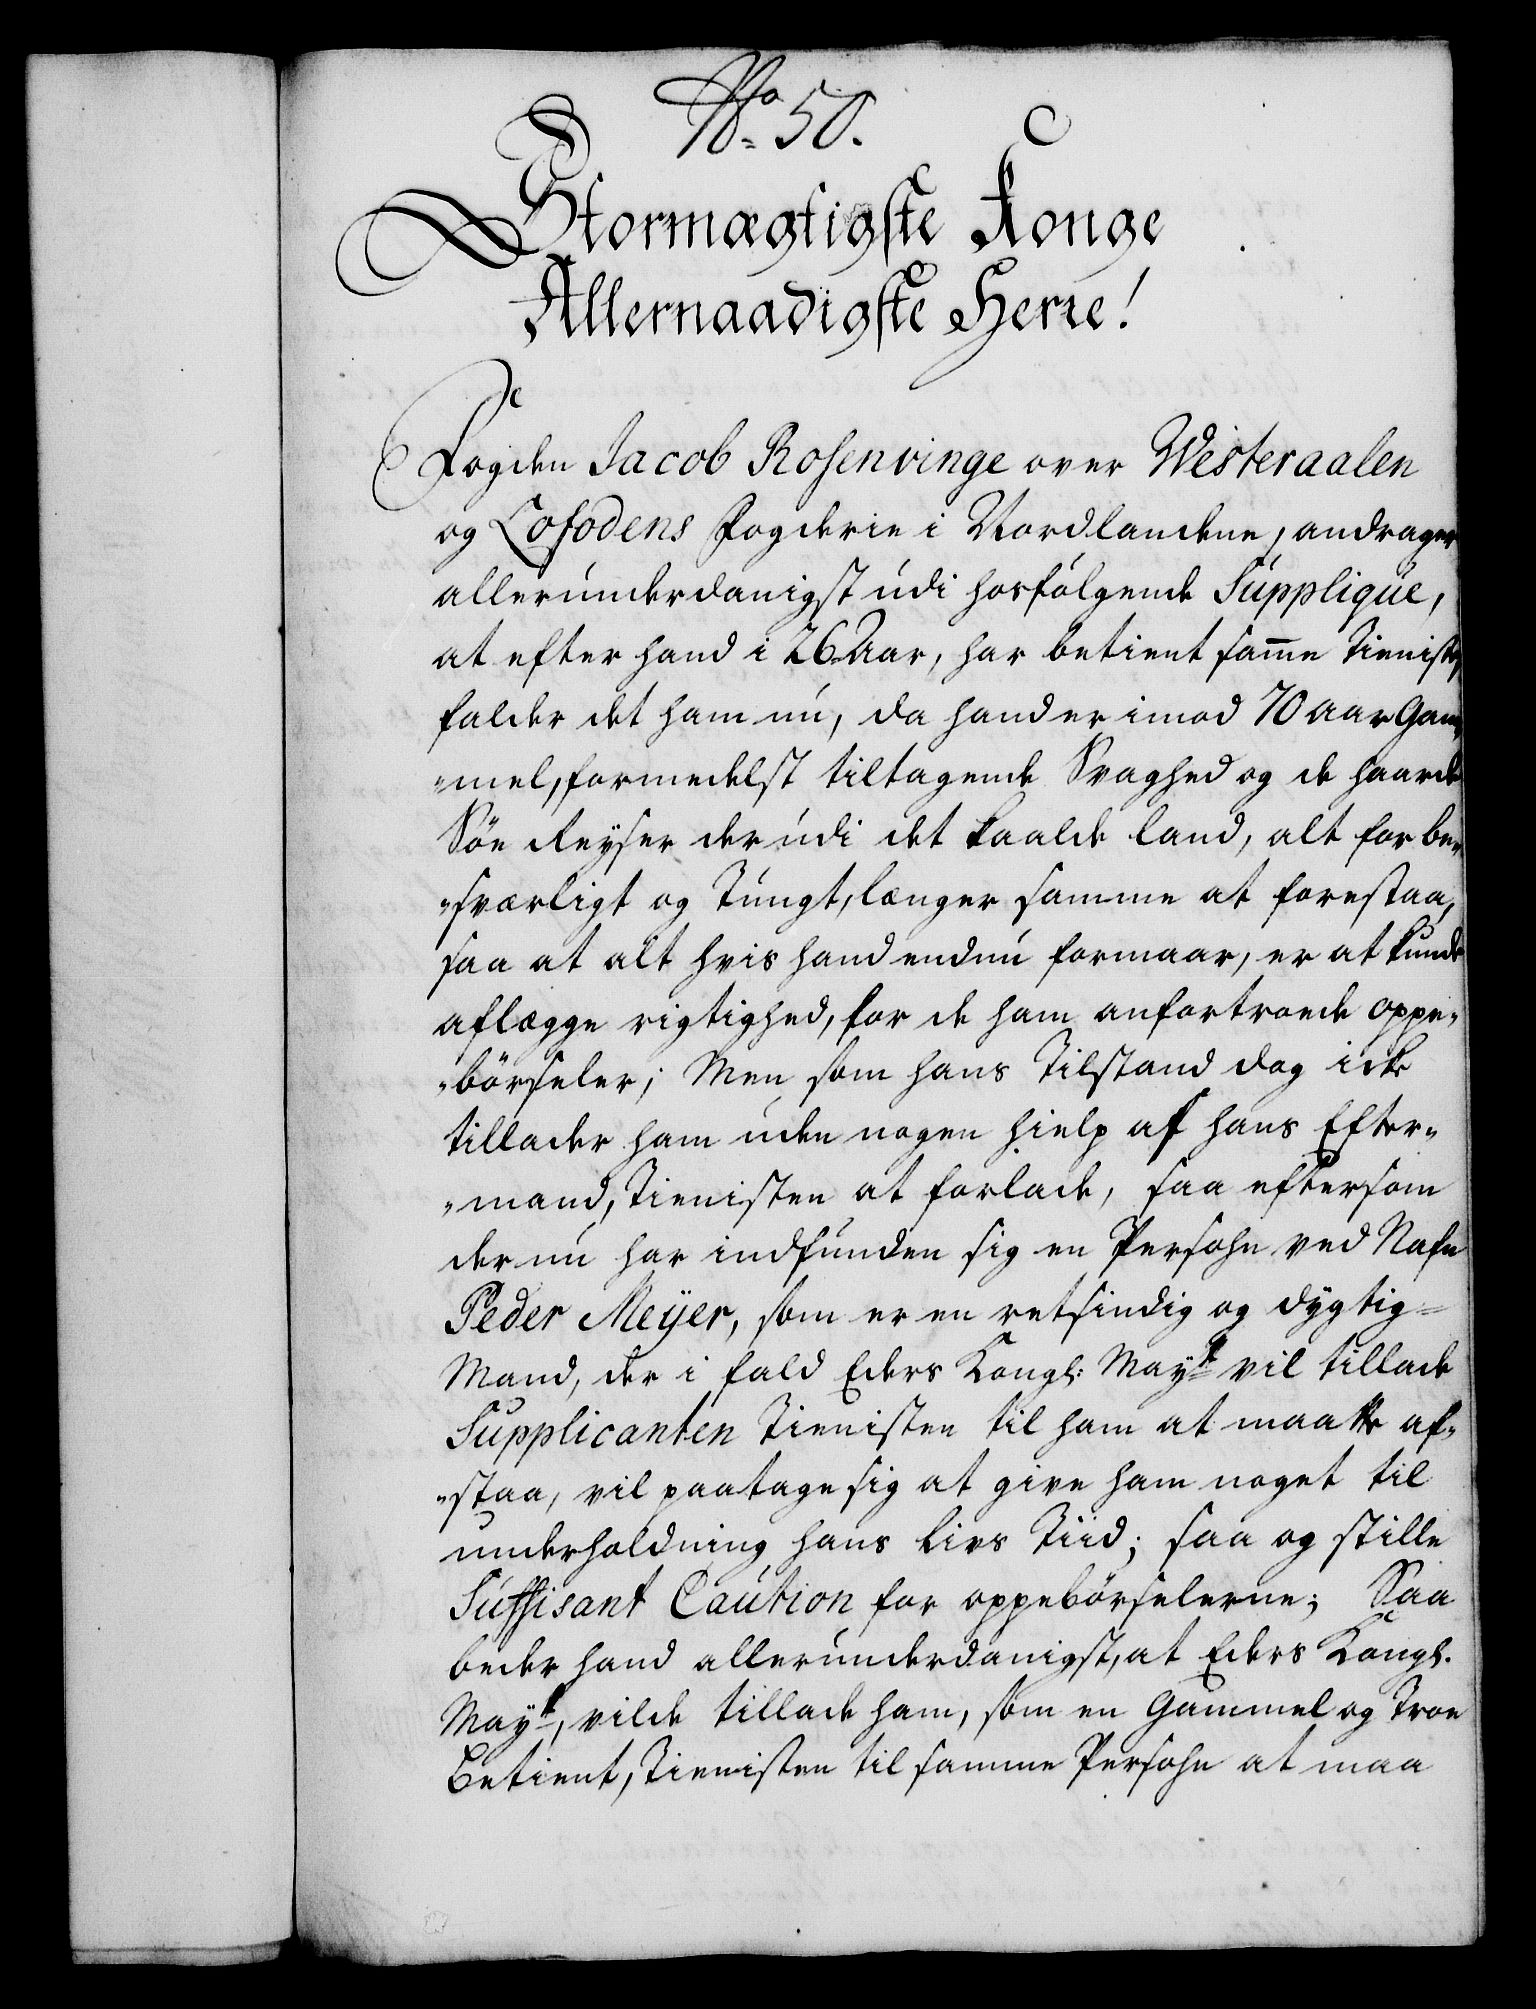 No. 50.
Stormægtigste Konge
Allernaadigste Herre!
Fogden Jacob Rosenvinge over Westeraalen
og Lofodens Fogderie i Nordlandene, andrager
allerúnderdanigst údi hosfølgende Súppliqúe,
at efter hand i 26 Aar, har betient sam̅e Tieniste,
falder det ham nú, da hand er imod 70 aar Gam„
„mel, formedelst tiltagende Svaghed og de haarde
Söe Reyser der údi det kaalde land, alt for be„
„sværligt og Túngt, længer samme at forestaa,
saa at alt hvis hand endnú formaar, er at kunde
aflægge rigtighed, for de ham anfortroede oppe„
„börseler; Men som hans Tilstand dog icke
tillader ham uden nogen hielp af hans Efter„
„mand, Tienisten at forlade, saa eftersom
der nú har indfúnden sig en Persohn ved Nafn
Peder Meÿer, som er en retsindig og dygtig
Mand, der i fald Eders Kongl: Mayt vil tillade
Supplicanten Tienisten til ham at maatte af„
„staa, vil paatage sig at give ham noget til
underholdning hans livs Tiid; saa og stille
Súffisant Caútion for oppebörselerne; Saa
beder hand allerúnderdanigst, at Eders Kongl.
Mayt, vilde tillade ham, som en Gammel og Troe
Betient, Tienisten til samme Persohn at maa